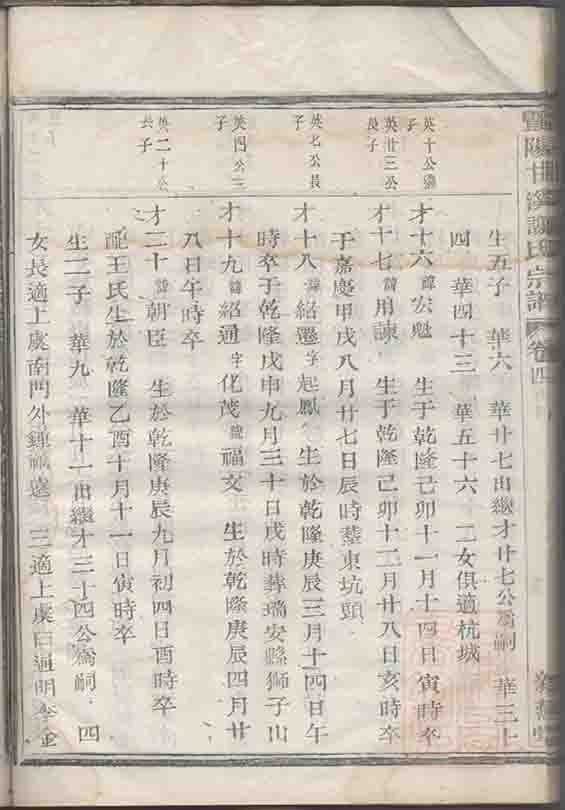 暨陽甘溪謝氏宗譜 卷四
生五子 華六 華廿七出繼才廿七公為嗣 華三十
四 華四十三 華五十六 二女俱適杭城
英十公
子
才十六諱宏魁 生于乾隆己卯十一月十四日寅時卒
英廿三公
長子
才十七諱用諫 生于乾隆己卯十二月廿八日亥時卒
于嘉慶甲戌八月廿七日辰時葬東坑頭
英七公長
子
才十八諱紹遷字起鳳 生於乾隆庚辰三月十四日午
時卒于乾隆戊申九月三十日戌時葬瑞安縣獅子山
英四公三
子
才十九諱紹通字化茂號福文 生於乾隆庚辰四月廿
八日午時卒
英二十公
長子
才二十諱朝臣 生於乾隆庚辰九月初四日酉時卒
配王氏生於乾隆乙酉十月十一日寅時卒
生二子 華九 華十一出繼才三十四公為嗣 四
女長適上虞南門外鍾 三適上虞